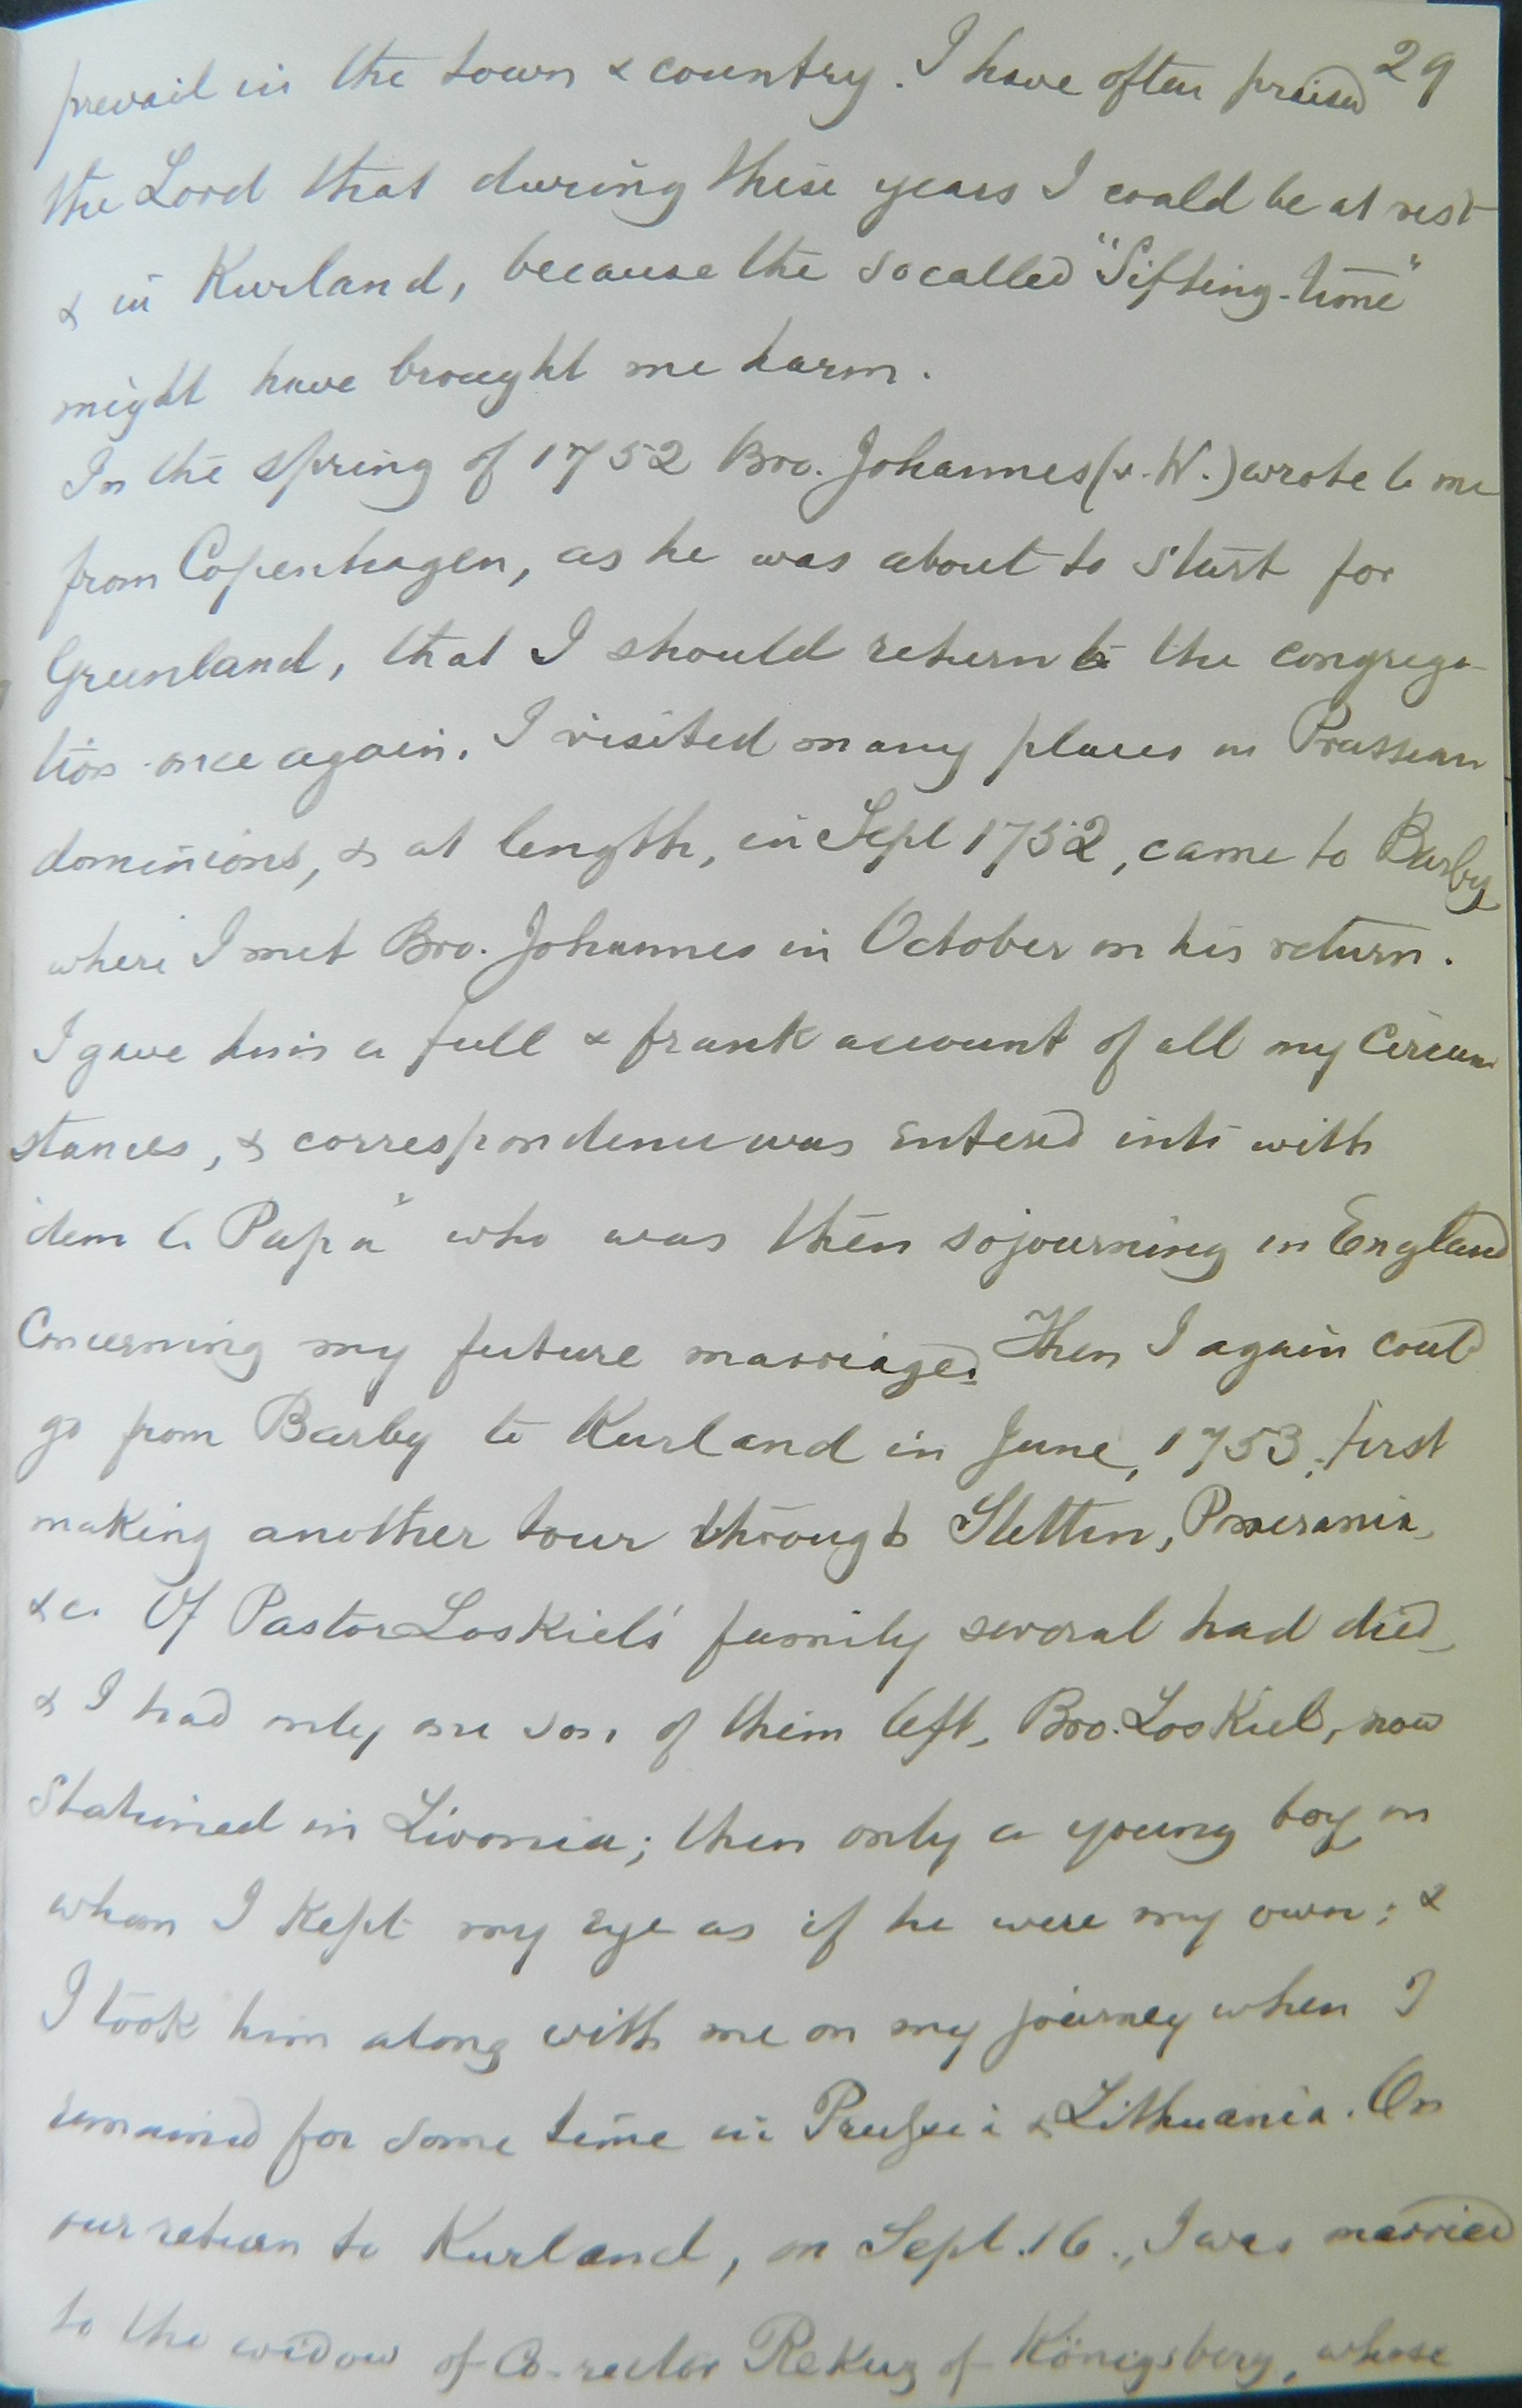 29
prevail in the town & country. I have often praised
the Lord that during these years I could be at rest
& in Kurland, because the so called "Sifting-time"
might have brought me harm.
In the spring of 1752 Bro. Johannes (v. W.) wrote to me
from Copenhagen, as he was about to start for
Greenland, that I should return to the congrega-
tion once again. I visited many places in Prussian
dominions, & at length, in Sept 1752, came to Barby
where I met Bro. Johannes in October on his return.
I gave him a full & frank account of all my circum
stances, & correspondence was entered into with
dem l. Papa" who was then sojourning in England
Concerning my future marriage. Then I again could
go from Barby to Kurland in June, 1753, first
making another tour through Stettin, Pomerania,
&c. Of Pastor Loskiel's family several had died,
& I had only one son of them left, Bro. Loskiel, now
stationed in Livonia; then only a young boy, on
whom I kept my eye as if he were my own; &
I took him along with me on my journey when I
remained for some time in Prussia & Lithuania. On
our return to Kurland, on Sept. 16., I was married
to the widow of Co-rector of Königsberg, whose